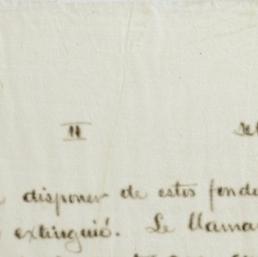 II
disponer de estos fond
extinguió. Le llama